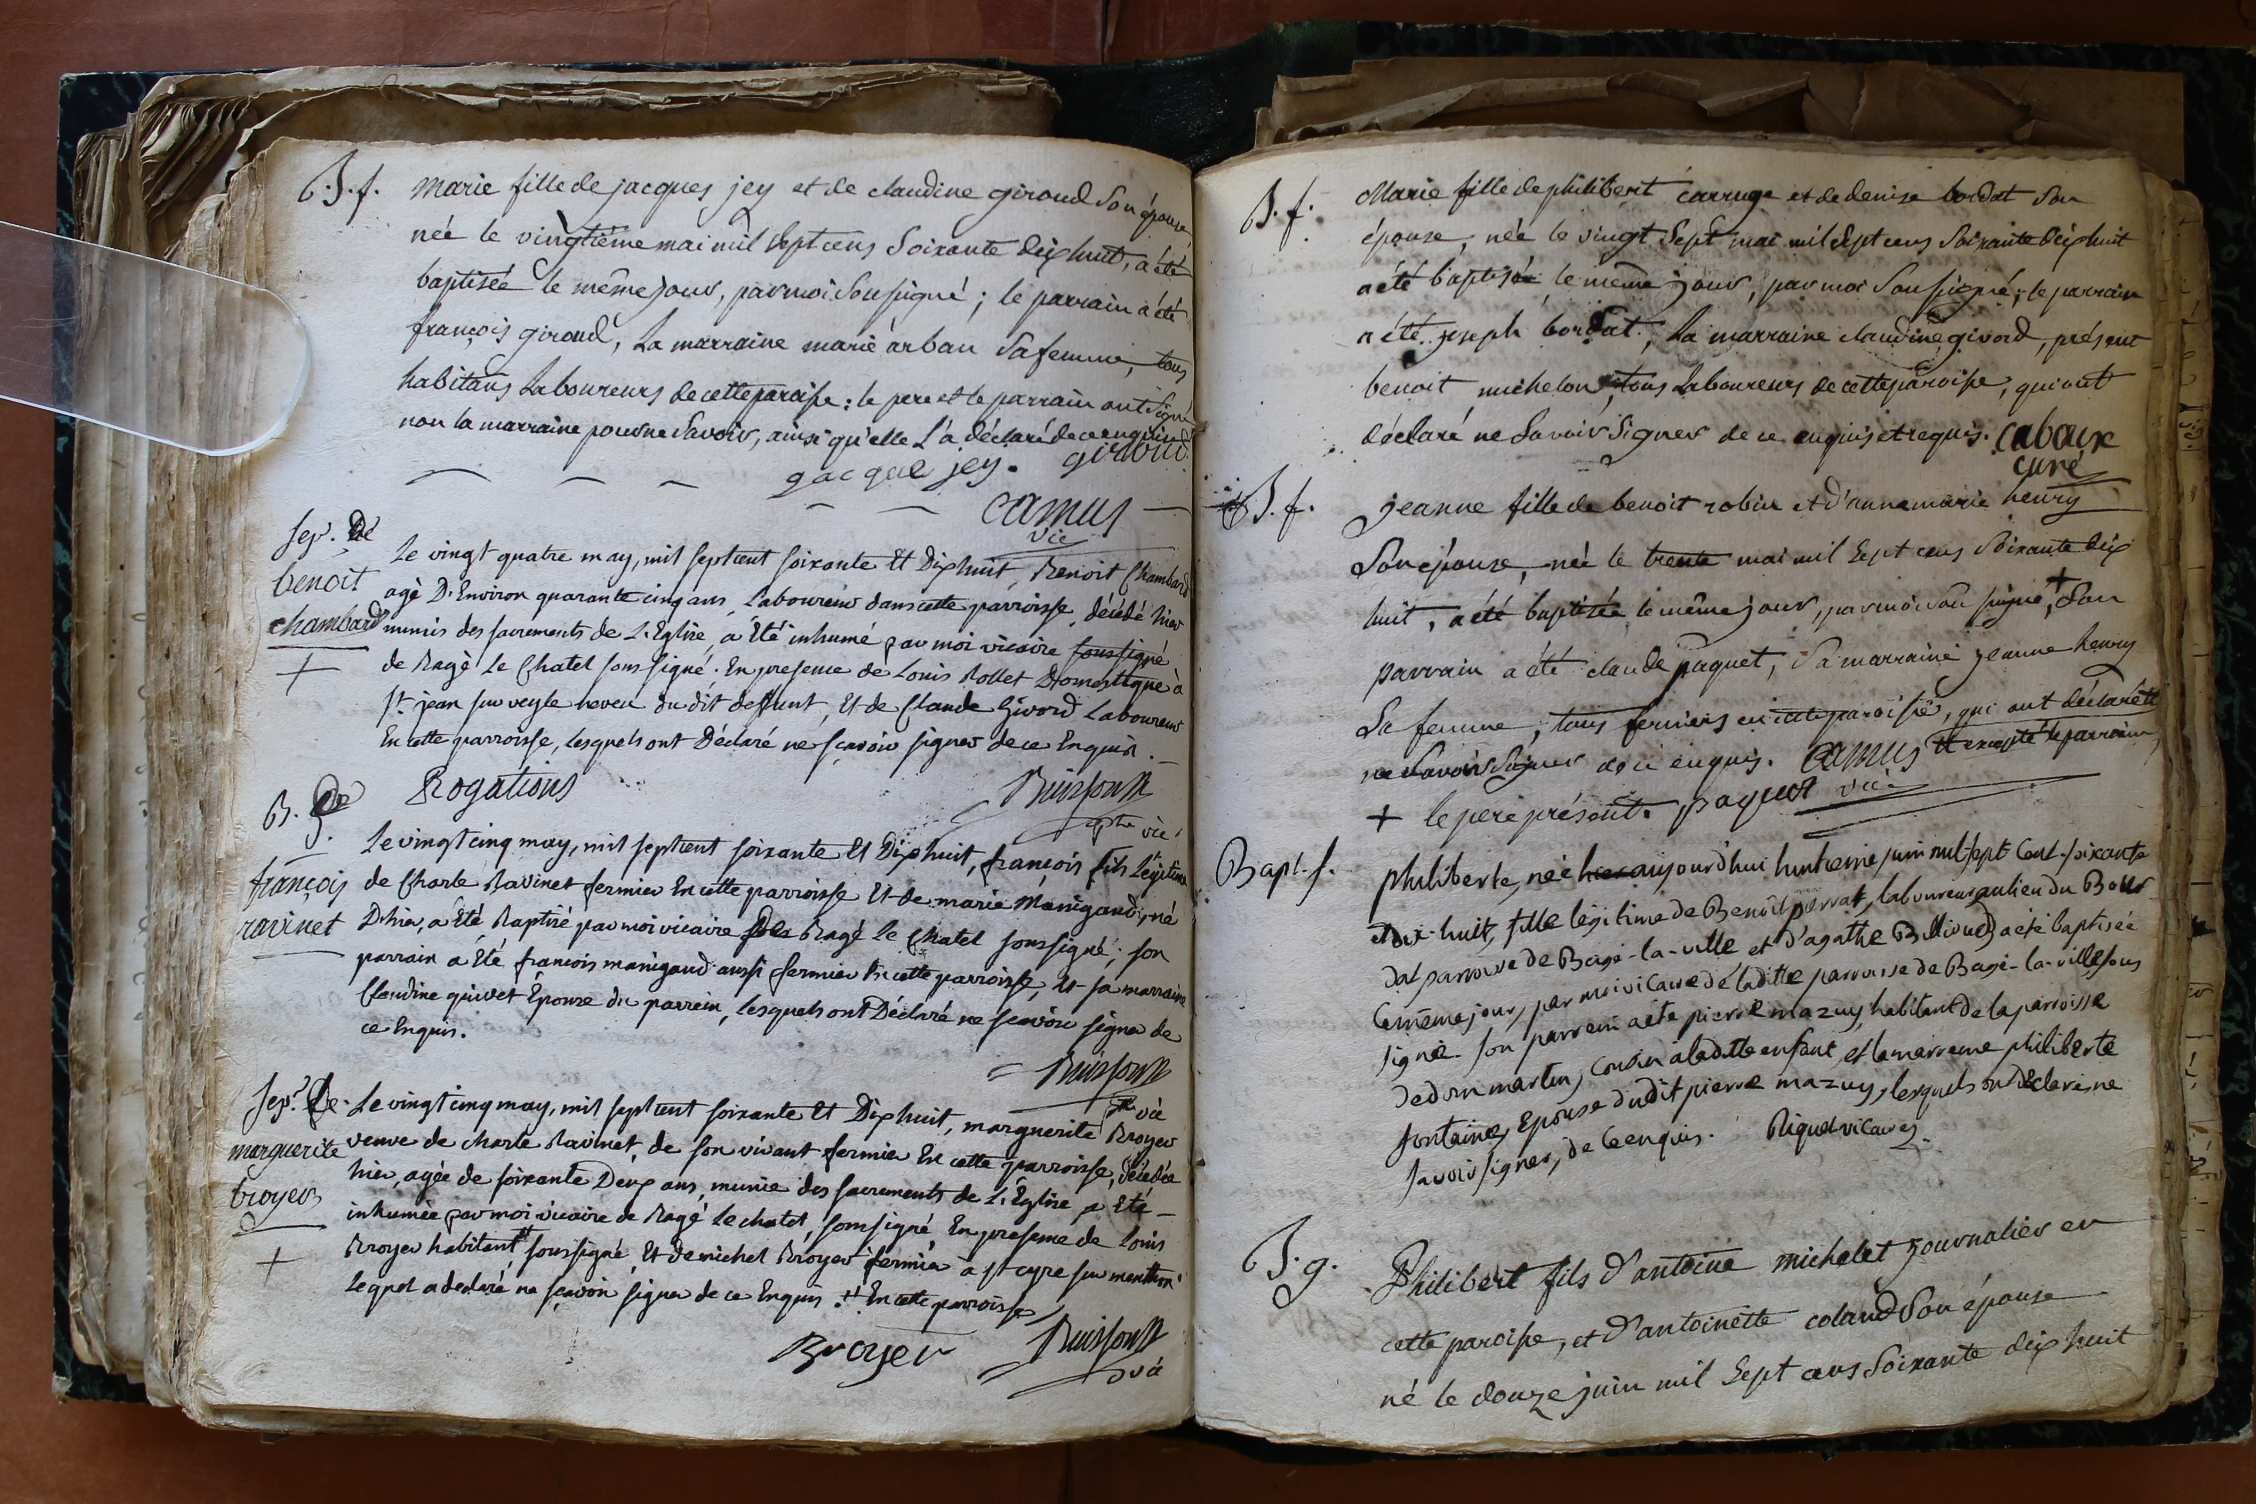 B.f. marie fille de jacques jey et de claudine giroud son épouse,
née le vingtième mai mil sept cens soixante dix huit, a été
baptisée le même jour, par moi soussigné ; le parrain a été
françois giroud, la marraine marie arban sa femme, tous
habitans laboureurs de cette paroisse : le pere et le parrain ont signé
non la marraine pour ne savoir, ainsi qu'elle l'a déclaré de ce enquise
gacque jey. giroud
camus
vic
sep.r de
benoit
chambard
Le vingt quatre may, mil septcent soixante Et Dix huit, Benoit Chambard
agé D'Environ quarante cinq ans, Laboureur dans cette parroisse, décédé hier
munis des sacrements de L'Eglise, a Eté inhumé par moi vicaire soussigné
de Bagé Le Chatel soussigné. En presence de Louis Rollet Domestique à
st. jean sur veyle neveu du dit deffunt, Et de Claude Givord Laboureur
En cette parroisse, lesquels ont Déclaré ne sçavoir signer de ce Enquis.
Rogations
Buisson
vic
B. g.
françois
ravinet
Le vingt cinq may, mil septcent soixante Et Dix huit, françois fils Légitime
de Charle Ravinet fermier En cette parroisse Et de marie Manigand, né
D'hier, a Eté Baptisé par moi vicaire de Bagé Le Chatel soussigné ; son
parrain a Eté françois manigand aussi fermier En cette parroisse, Et sa marraine
Claudine guivet Epouse du parrein, lesquels ont Déclaré ne sçavoir signer de
ce Enquis.
Buisson
vic
sep.r de
marguerite
broyer
Le vingt cinq may, mil septcent soixante Et Dix huit, marguerite Broyer
veuve de charle Ravinet, de son vivant fermier En cette parroisse, décédée
hier, agée de soixante Deux ans, munie des sacrements de L'Eglise a Eté
inhumée par moi vicaire de Bagé Le chatel, soussigné, En presence de Louis
Broyer habitant soussigné, Et de michel Broyer fermier à st cyre sur menthon
Lequel a declaré ne sçavoir signer de ce Enquis. En cette parroisse
Broyer Buisson
vic
B.f. Marie fille de philibert carruge et de denise bordat son
épouse, née le vingt sept mai mil sept cens soixante dix huit
a été baptisée le même jour, par moi soussigné ; le parrain
a été joseph bordat, la marraine claudine givord, présent
benoit michelon, tous laboureurs de cette paroisse, qui ont
déclaré ne savoir signer de ce enquis et requis. cabaux
curé
B.f. jeanne fille de benoit robin et d'anne marie henry
son épouse, née le trente mai mil sept cens soixante dix
huit, a été baptisée le même jour, par moi soussigné, + son
parrain a été claude paquet, sa marraine jeanne henry
sa femme, tous fermiers en cette paroisse, qui ont déclaré
ne savoir signer de ce enquis. camus excepté le parrain,
+ le pere présent. paquet vic.
Bapt. f. philiberte, née hier aujourd'huy huitieme juin mil sept cent soixante
et dix-huit, fille légitime de Benoit perrat, laboureur au lieu du Bour
dat parroisse de Bagé-la-ville et d'agathe Billioud a été baptisée
le même jour, par moi vicaire de laditte parroisse de Bagé-la-ville sous
signé. son parrein a été pierre mazuy, habitant de la parroisse
de dommartin, cousin a laditte enfant, et la marreine philiberte
fontaine, Epouse dudit pierre mazuy, lesquels ont déclaré ne
savoir signer, de ce enquis. Riquel vicaire.
B.g. Philibert fils d'antoine michelet journalier en
cette paroisse, et d'antoinette coland son épouse
né le douze juin mil sept cens soixante dix huit